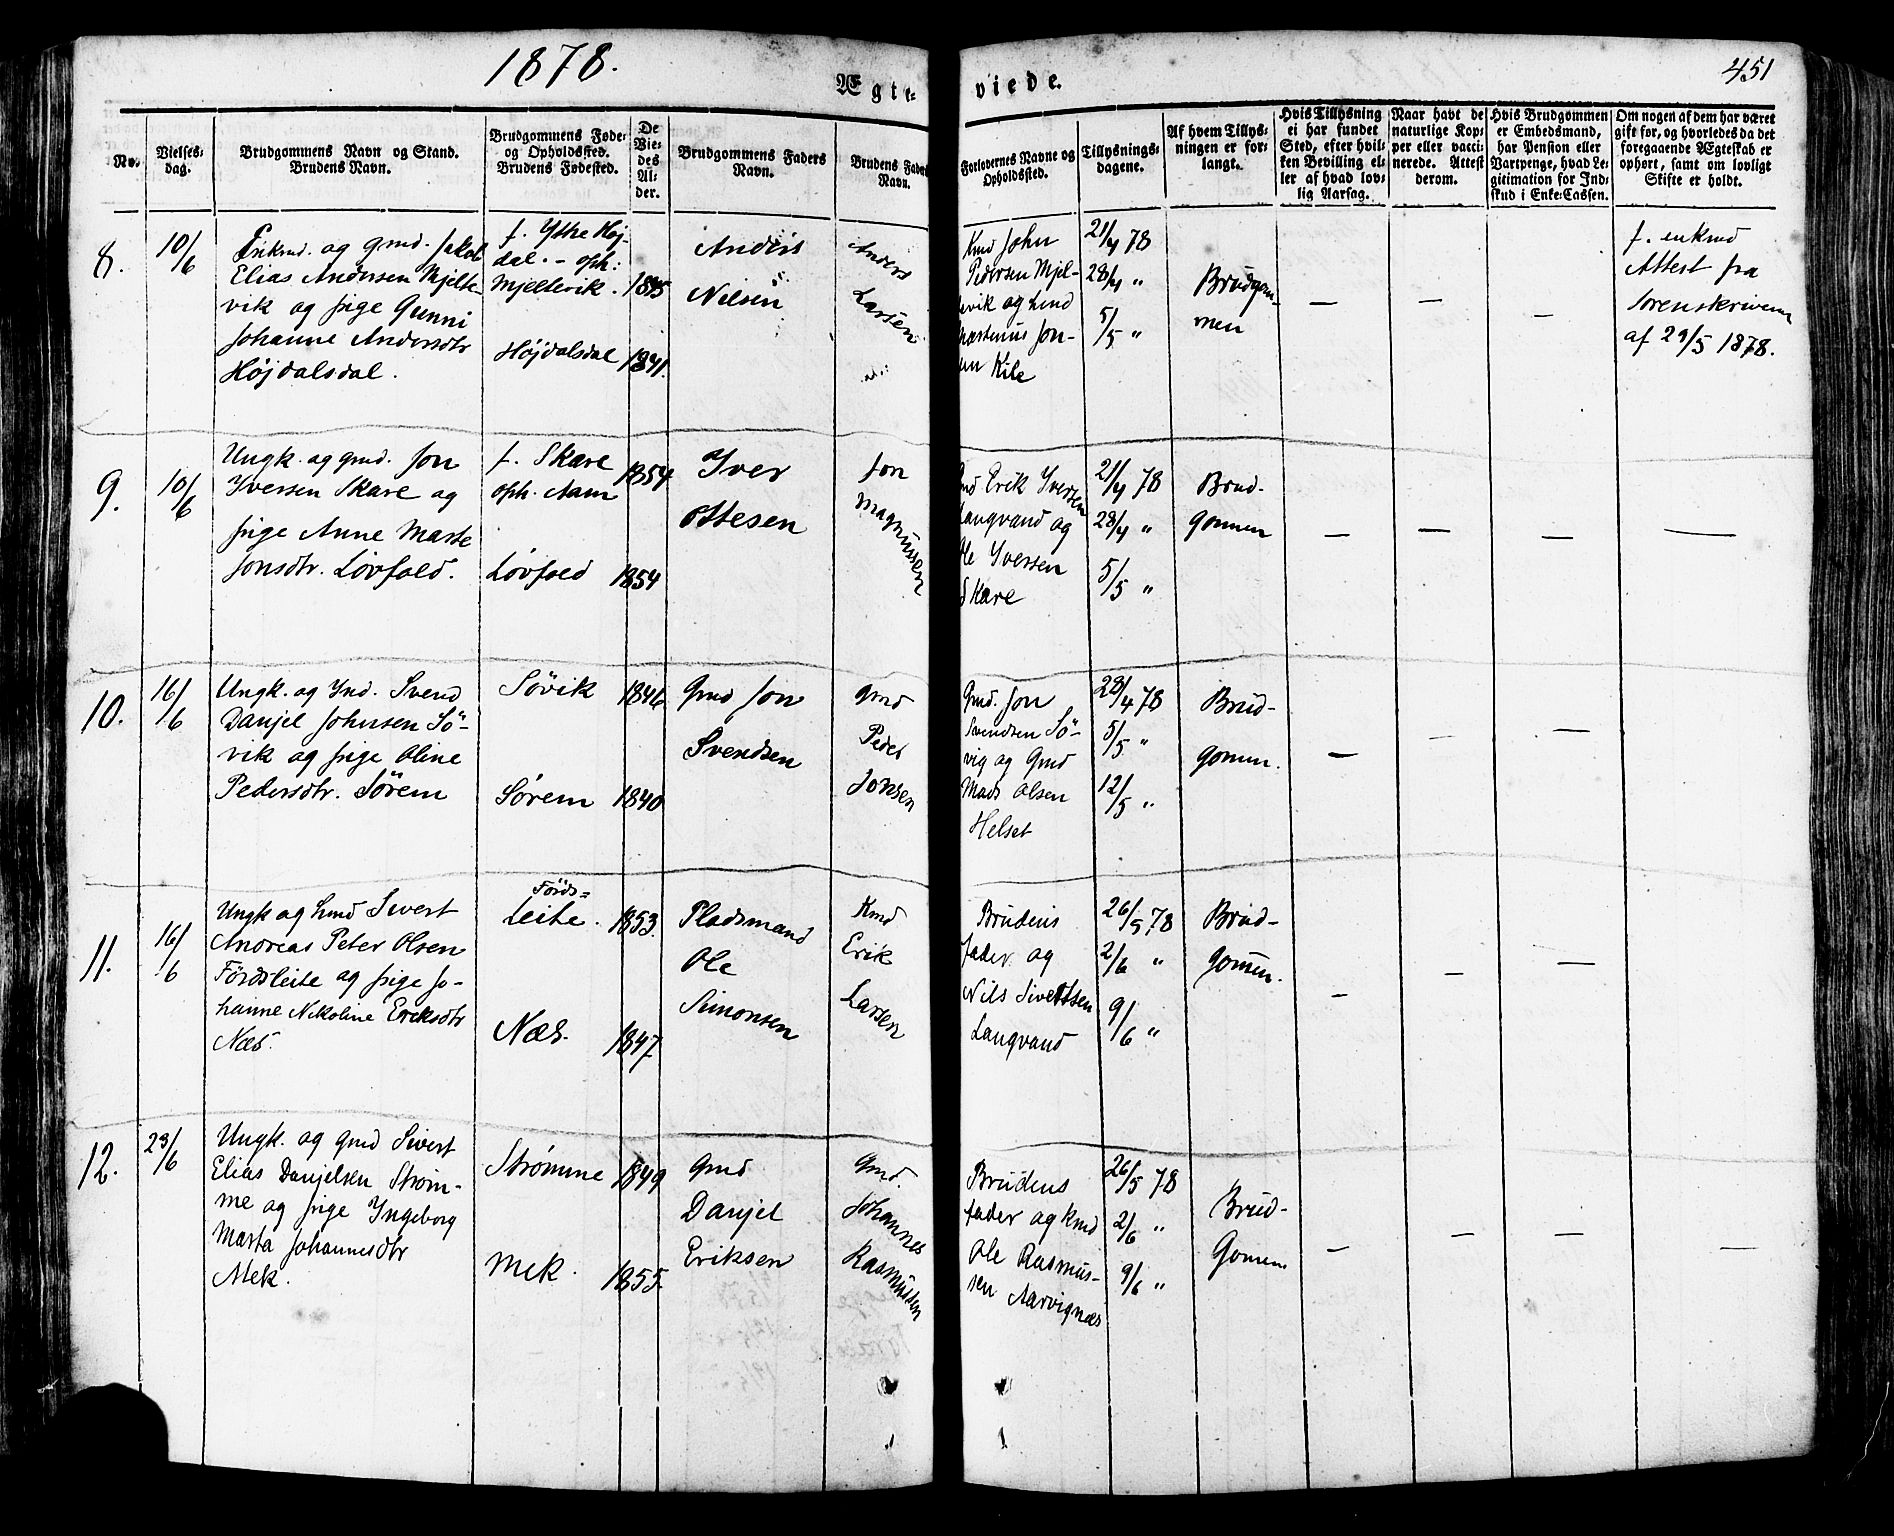 1878.
451
Ægte-
viede.
No.
Vielses-
dag.
Brudgommens Navn og Stand.
Brudens Navn.
Brudgommens Føde-
og Opholdssted.
Brudens Fødested.
De
Vie-
des
Al-
der.
Brudgommens Faders
Navn.
Brudens Fad
Navn.
Forlovernes Navne og
Opholdssted.
Tillysnings-
dagene.
Af hvem Tillys-
ningen er for-
langt.
Hvis Tillysning
ei har fundet
Sted, efter hvil-
ken Bevilling el-
ler af hvad lov-
lig Aarsag.
Naar havt de
naturlige Kop-
per eller vacci-
nerede. Attest
derom.
Hvis Brudgommen
er Embedsmand,
har Pension eller
Vartpenge, hvad Le-
gitimation for Ind-
skud i Enke-Cassen.
Om nogen af dem har været
gift før, og hvorledes da det
foregaaende Ægteskab er
ophørt, samt om lovligt
Skifte er holdt.
8.
10/6
Enkmd. og gmd. Jakob
Elias Andersen Mjelte-
vik og pige Gunni
Johanne Andersdtr
Højdalsdal.
f. Ytre Høj-
dal. - oph:
Mjeltevik.
1845
Højdalsdal
1841.
Anders
Nilsen
Anders
Larsen
Kmd John
Pedersen Mjel-
tevik og Lmd
Rasmus Jon-
sen Kile
21/4 78
28/4 "
5/5 "
Brudgom-
men
—
—
—
f. enkmd
Attest fra
Sorenskriveren
af 29/5 1878.
9.
10/6
Ungk. og gmd. Jon
Iversen Skare og
pige Anne Marte
Jonsdtr. Løvfold.
f. Skare
oph. Aam
1854
Løvfold
1854
Iver
Ottesen
Jon
Magnussen
Gmd Erik Iversen
Langvand og
Ole Iversen
Skare
21/4 78
28/4 "
5/5 "
Brud-
Gommen
—
—
—
—
10.
16/6
Ungk. og Ind. Svend
Danjel Johnsen Sö-
vik og pige Oline
Pedersdtr. Sörem
Sövik
1846
Sörem
1840
Gmd Jon
Svendsen
Gmd
Peder
Jonsen
Gmd. Jon
Svendsen Sö-
vig og Gmd
Mads Olsen
Helset
28/4 78
5/5 "
12/5 "
Brud-
gommen.
—
—
—
11.
16/6
Ungk og Lmd Sivert
Andreas Peter Olsen
Førdsleite og pige Jo-
hanne Nikoline Eriksdtr
Næs.
Førds-
Leite.
1853.
Næs.
1847.
Pladsmand
Ole
Simonsen
Kmd
Erik
Larsen
Brudens
fader og
Nils Sivertsen
Langvand
26/5 78
2/6 "
9/6 "
Brud-
Gommen.
—
—
—
12.
23/6
Ungk. og gmd Sivert
Elias Danjelsen Strøm-
me og pige Ingeborg
Marta Johannesdtr
Mek.
Strømme
1849
Mek.
1855.
Gmd
Danjel
Eriksen
Gmd.
Johannes
Rasmussen
Brudens
fader og kmd
Ole Rasmus-
sen Aarvignæs
26/5 78
2/6 "
9/6 "
Brud-
Gommen
—
—
—
—